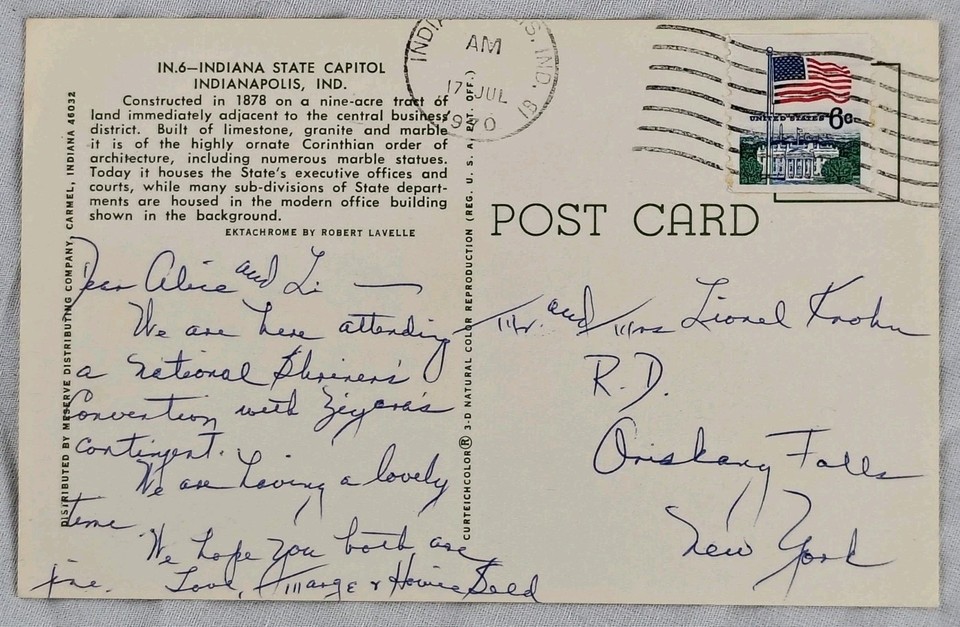 IN.6—INDIANA STATE CAPITOL
INDIANAPOLIS, IND.
Constructed in 1878 on a nine-acre tract of
land immediately adjacent to the central business
district. Built of limestone, granite and marble
it is of the highly ornate Corinthian order of
architecture, including numerous marble statues.
Today it houses the State's executive offices and
courts, while many sub-divisions of State depart-
ments are housed in the modern office building
shown in the background.
EKTACHROME BY ROBERT LAVELLE
DISTRIBUTED BY MESERVE DISTRIBUTING COMPANY, CARMEL, INDIANA 46032
Dear Alice and Li —
We are here attending
a National Shriner's
Convention with Ziyara's
contingent.
We are having a lovely
time
We hope you both are
fine. Love, Marge & Howie
CURTEICHCOLOR® 3-D NATURAL COLOR REPRODUCTION (REG. U. S. A. PAT. OFF.)
AM
17 JUL
1970
IND.
UNITED STATES 6c
POST CARD
Mr. and Mrs Lionel Krohn
R.D.
Oriskany Falls
New York